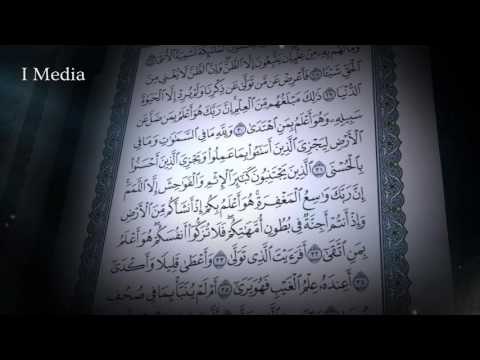 I Media
تَسْمِيَةَ ٱلْأُنثَىٰ
وَمَا لَهُم بِهِۦ مِنْ عِلْمٍ إِن يَتَّبِعُونَ إِلَّا ٱلظَّنَّ وَإِنَّ ٱلظَّنَّ لَا يُغْنِى مِنَ
ٱلْحَقِّ شَيْـًٔا ٢٨ فَأَعْرِضْ عَن مَّن تَوَلَّىٰ عَن ذِكْرِنَا وَلَمْ يُرِدْ إِلَّا ٱلْحَيَوٰةَ
ٱلدُّنْيَا ٢٩ ذَٰلِكَ مَبْلَغُهُم مِّنَ ٱلْعِلْمِ إِنَّ رَبَّكَ هُوَ أَعْلَمُ بِمَن ضَلَّ عَن
سَبِيلِهِۦ وَهُوَ أَعْلَمُ بِمَنِ ٱهْتَدَىٰ ٣٠ وَلِلَّهِ مَا فِى ٱلسَّمَٰوَٰتِ وَمَا فِى
ٱلْأَرْضِ لِيَجْزِىَ ٱلَّذِينَ أَسَٰٓـُٔوا۟ بِمَا عَمِلُوا۟ وَيَجْزِىَ ٱلَّذِينَ أَحْسَنُوا۟
بِٱلْحُسْنَى ٣١ ٱلَّذِينَ يَجْتَنِبُونَ كَبَٰٓئِرَ ٱلْإِثْمِ وَٱلْفَوَٰحِشَ إِلَّا ٱللَّمَمَ
إِنَّ رَبَّكَ وَٰسِعُ ٱلْمَغْفِرَةِ هُوَ أَعْلَمُ بِكُمْ إِذْ أَنشَأَكُم مِّنَ ٱلْأَرْضِ
وَإِذْ أَنتُمْ أَجِنَّةٌ فِى بُطُونِ أُمَّهَٰتِكُمْ فَلَا تُزَكُّوٓا۟ أَنفُسَكُمْ هُوَ أَعْلَمُ
بِمَنِ ٱتَّقَىٰٓ ٣٢ أَفَرَءَيْتَ ٱلَّذِى تَوَلَّىٰ ٣٣ وَأَعْطَىٰ قَلِيلًا وَأَكْدَىٰٓ ٣٤
أَعِندَهُۥ عِلْمُ ٱلْغَيْبِ فَهُوَ يَرَىٰٓ ٣٥ أَمْ لَمْ يُنَبَّأْ بِمَا فِى صُحُفِ